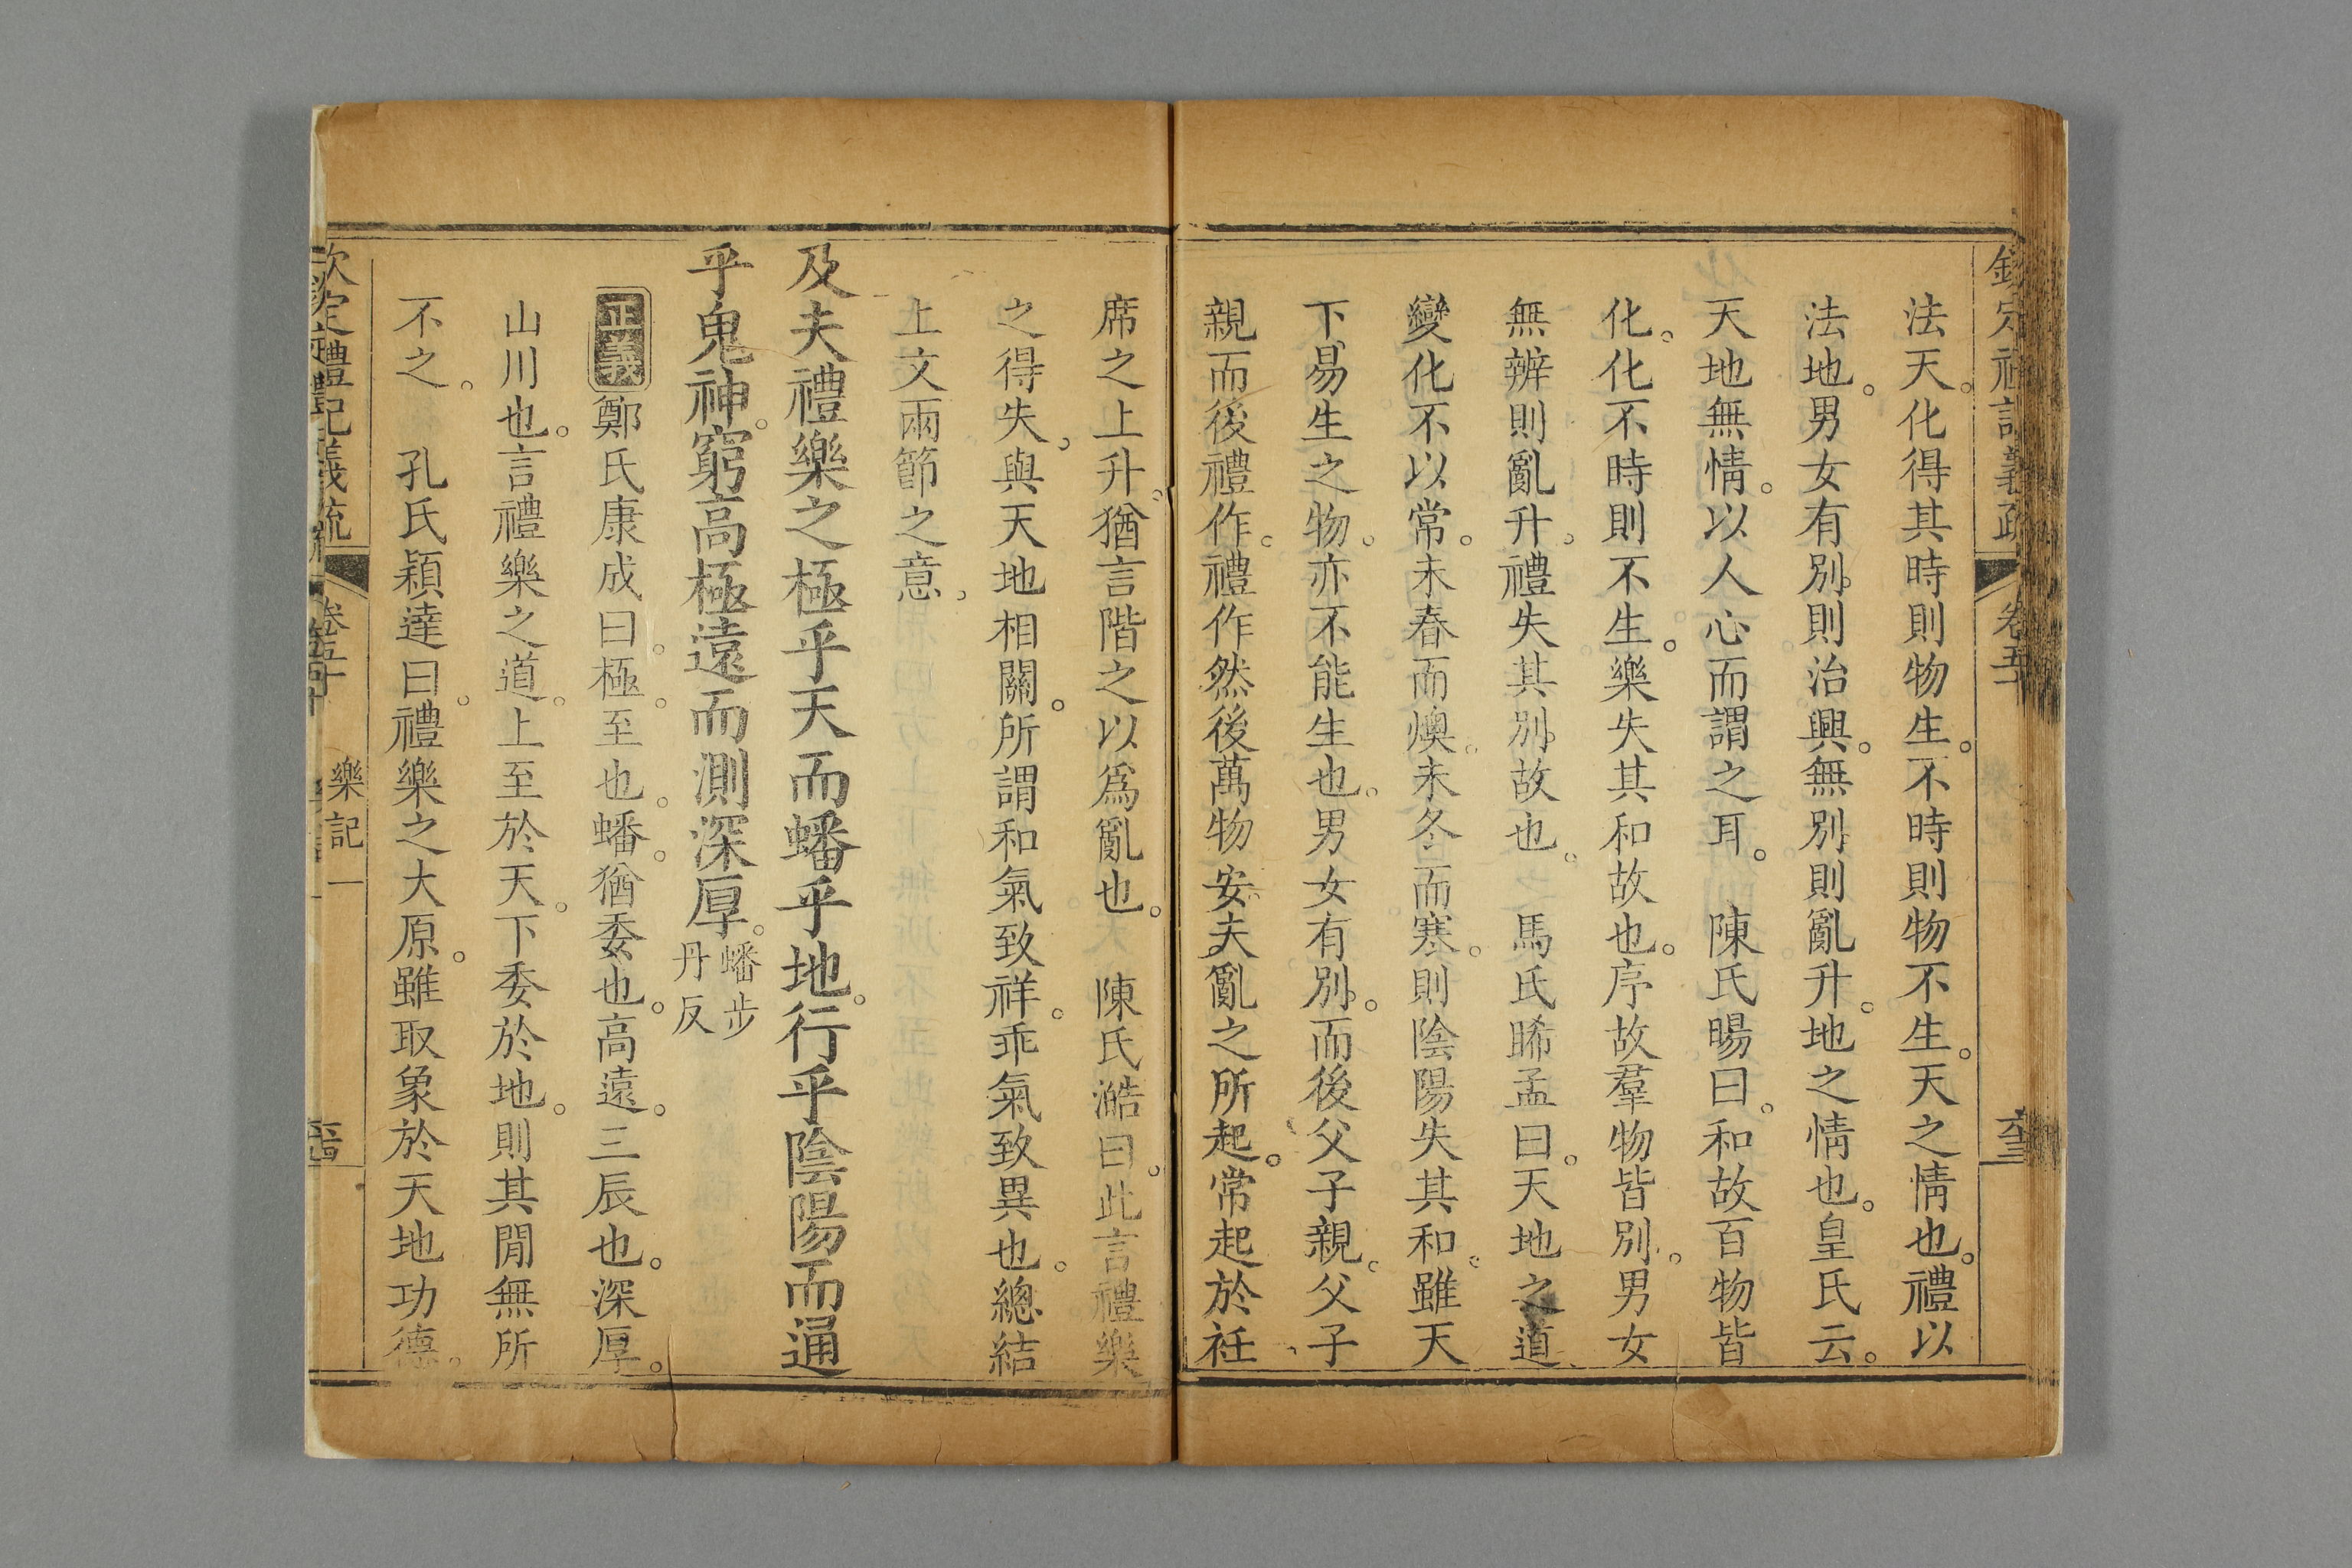 欽定禮記義疏 卷五十 奎
法天。化得其時則物生。不時則物不生。天之情也。禮以
法地。男女有別。則治興。無別則亂升。地之情也。皇氏云。
天地無情。以人心而謂之耳。 陳氏暘曰。和故百物皆
化。化不時則不生。樂失其和故也。序故羣物皆別。男女
無辨則亂升。禮失其別故也。 馬氏晞孟曰。天地之道
變化不以常。未春而燠。未冬而寒。則陰陽失其和。雖天
下易生之物。亦不能生也。男女有別。而後父子親。父子
親而後禮作。禮作然後萬物安。夫亂之所起。常起於衽
席之上升。猶言階之以為亂也。 陳氏澔曰。此言禮樂
之得失。與天地相關。所謂和氣致祥。乖氣致異也。總結
上文兩節之意。
及夫禮樂之極乎天而蟠乎地。行乎陰陽而通
乎鬼神。窮高極遠而測深厚。蟠步丹反
正義 鄭氏康成曰。極。至也。蟠。猶委也。高遠。三辰也。深厚。
山川也。言禮樂之道。上至於天。下委於地。則其閒無所
不之。 孔氏穎達曰。禮樂之大原。雖取象於天地功德。
欽定禮記義疏 卷五十 樂記一